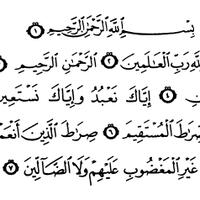 بِسْمِ اللَّهِ الرَّحْمَٰنِ الرَّحِيمِ ١
لَّهِ رَبِّ الْعَالَمِينَ ٢ الرَّحْمَٰنِ الرَّحِيمِ
نِ ٤ إِيَّاكَ نَعْبُدُ وَإِيَّاكَ نَسْتَعِين
رَاطَ الْمُسْتَقِيمَ ٦ صِرَاطَ الَّذِينَ أَنْعَم
غَيْرِ الْمَغْضُوبِ عَلَيْهِمْ وَلَا الضَّالِّينَ ٧